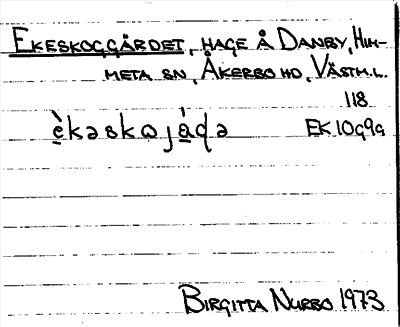 EKESKOGGÄRDET, HAGE Å DANBY, HIM-
META SN, ÅKERBO HD, VÄSTM.L.
118
EK 10G9a
BIRGITTA NURBO 1973